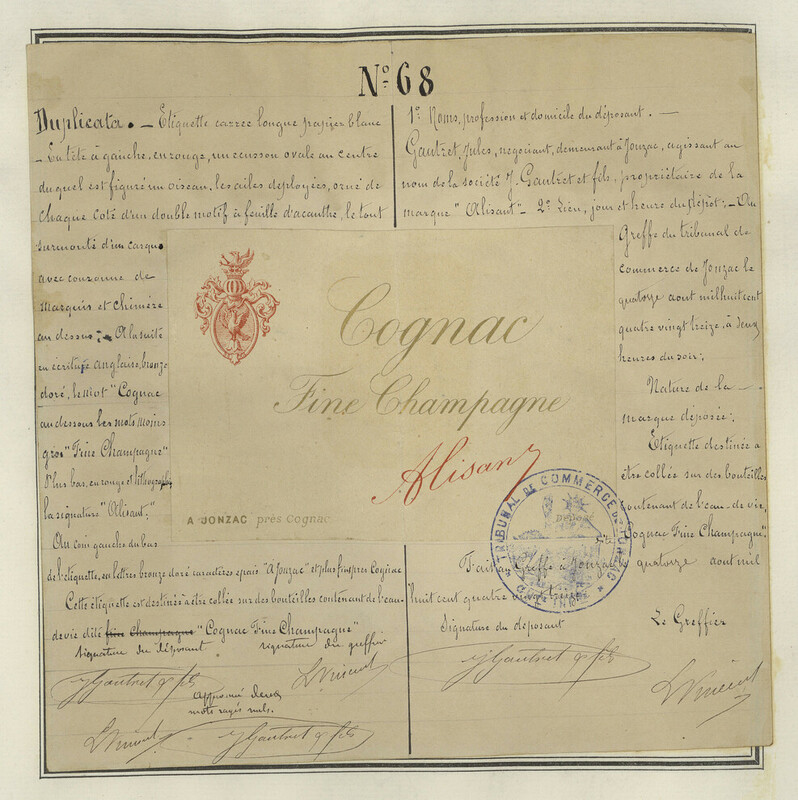 No. 68
Duplicata. — Etiquette carrée longue papier blanc
— En tête à gauche, en rouge, un ecusson ovale au centre
duquel est figuré un oiseau, les ailes deployées, orné de
chaque coté d'un double motif à feuille d'acanthe, le tout
surmonté d'un casque
avec couronne de
Marquis et chimère
au dessus; — A la suite
en écriture anglaise, bronze
doré, le mot "Cognac
au dessous les mots moins
gros "Fine Champagne"
Plus bas, en rouge et lithographiée
la signature "Alisant."
Au coin gauche du bas
de l'etiquette, en lettres bronze doré caractères epais "A Jonzac" et plus fins près Cognac
Cette étiquette est destinée à être collée sur des bouteilles contenant de l'eau-
de vie dite fine Champagne "Cognac Fine Champagne"
signature du déposant
signature du greffier
J Gautret & fils
L Vincent
Approuvé deux
mots rayés nuls.
L Vincent
J Gautret & fils
Cognac
Fine Champagne
Alisant
A JONZAC près Cognac
1º Noms, profession et domicile du déposant. —
Gautret, Jules, negociant, demeurant à Jonzac, agissant au
nom de la société J. Gautret et fils, propriétaire de la
marque "Alisant" — 2º Lieu, jour et heure du dépôt: — Au
Greffe du tribunal de
commerce de Jonzac le
quatorze aout mil huit cent
quatre vingt treize, à deux
heures du soir;
Nature de la —
marque déposée:
Etiquette destinée à
être collée sur des bouteilles
contenant de l'eau-de vie,
Cognac Fine Champagne".
Fait au Greffe à Jonzac, quatorze aout mil
huit cent quatre vingt treize
TRIBUNAL DE COMMERCE DE JONZAC
Signature du déposant
Le Greffier
J Gautret & fils
L Vincent